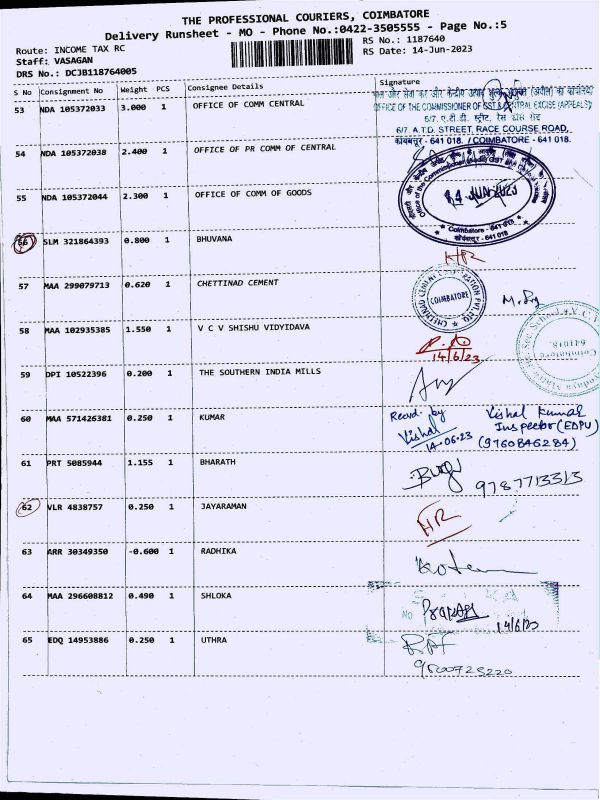 THE PROFESSIONAL COURIERS, COIMBATORE
Delivery Runsheet - MO - Phone No.:0422-3505555 - Page No.:5
Route: INCOME TAX RC
RS No.: 1187640
Staff: VASAGAN
RS Date: 14-Jun-2023
DRS No.: DCJB118764005
S No Consignment No Weight PCS Consignee Details Signature
53 NDA 105372033 3.000 1 OFFICE OF COMM CENTRAL
OFFICE OF THE COMMISSIONER OF GST & CENTRAL EXCISE (APPEALS)
6/7, ए.टी.डी. स्ट्रीट, रेस कोर्स रोड
6/7 A.T.D. STREET, RACE COURSE ROAD,
कोयम्बत्तूर - 641 018. / COIMBATORE - 641 018.
54 NDA 105372038 2.400 1 OFFICE OF PR COMM OF CENTRAL
14 JUN 2023
55 NDA 105372044 2.300 1 OFFICE OF COMM OF GOODS
Coimbatore - 641 018
56 SLM 321864393 0.800 1 BHUVANA
57 MAA 299079713 0.620 1 CHETTINAD CEMENT
COIMBATORE
58 MAA 102935385 1.550 1 V C V SHISHU VIDYIDAVA
14/6/23
641018.
Coimbatore
59 DPI 10522396 0.200 1 THE SOUTHERN INDIA MILLS
60 MAA 571426381 0.250 1 KUMAR
Recvd. by
Vishal
14-06-23
Vishal Kumar
Inspector (EDPU)
(9760846284)
61 PRT 5085944 1.155 1 BHARATH
9787713313
62 VLR 4838757 0.250 1 JAYARAMAN
HR
63 ARR 30349350 -0.600 1 RADHIKA
64 MAA 296608812 0.490 1 SHLOKA
NO
14/6/23
65 EDQ 14953886 0.250 1 UTHRA